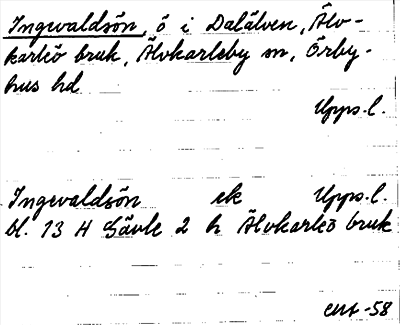 Ingevaldsön, ö i Dalälven, Älv-
karleö bruk, Älvkarleby sn, Örby-
hus hd
Upps.l.
Ingevaldsön ek Upps.l.
bl. 13 H Gävle 2 h Älvkarleö bruk
-58